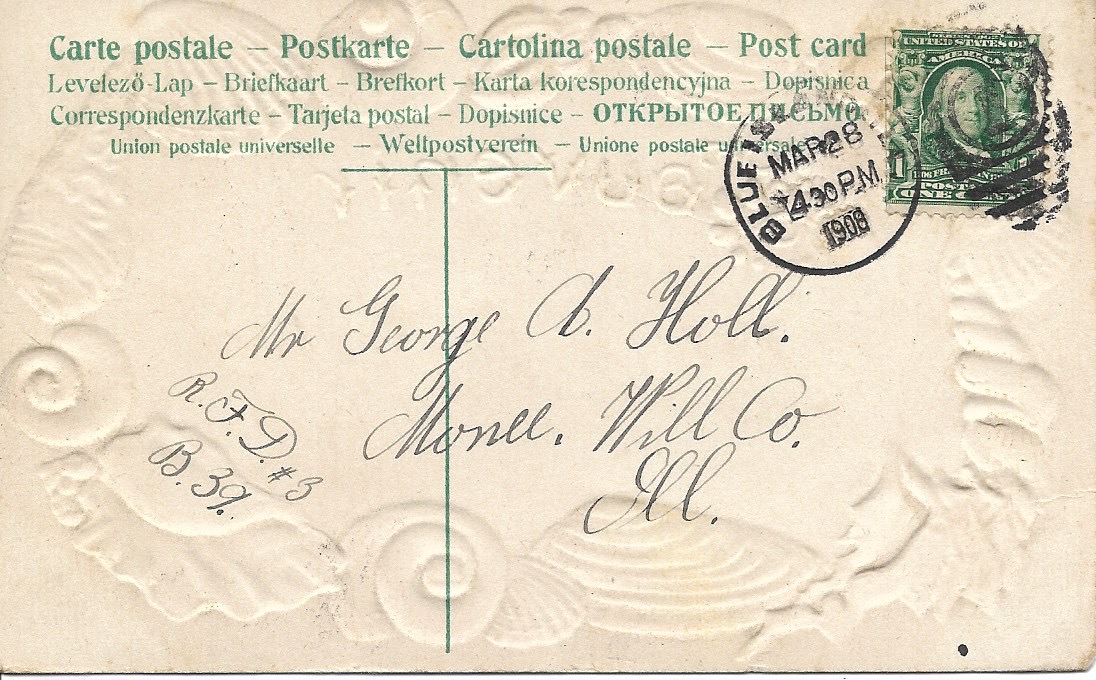 Carte postale – Postkarte – Cartolina postale – Post card
Levelező-Lap – Briefkaart – Brefkort – Karta korespondencyjna – Dopisnica
Correspondenzkarte – Tarjeta postal – Dopisnice – ОТКРЫТОЕ ПИСЬМО.
Union postale universelle – Weltpostverein – Unione postale universale
UNITED STATES OF
AMERICA
1
POSTAGE
ONE CENT
BLUE ISLAND
MAR 28
4 30 P.M
1908
Mr George A. Holl.
Monee. Will Co.
Ill.
R.F.D. #3
B. 39.